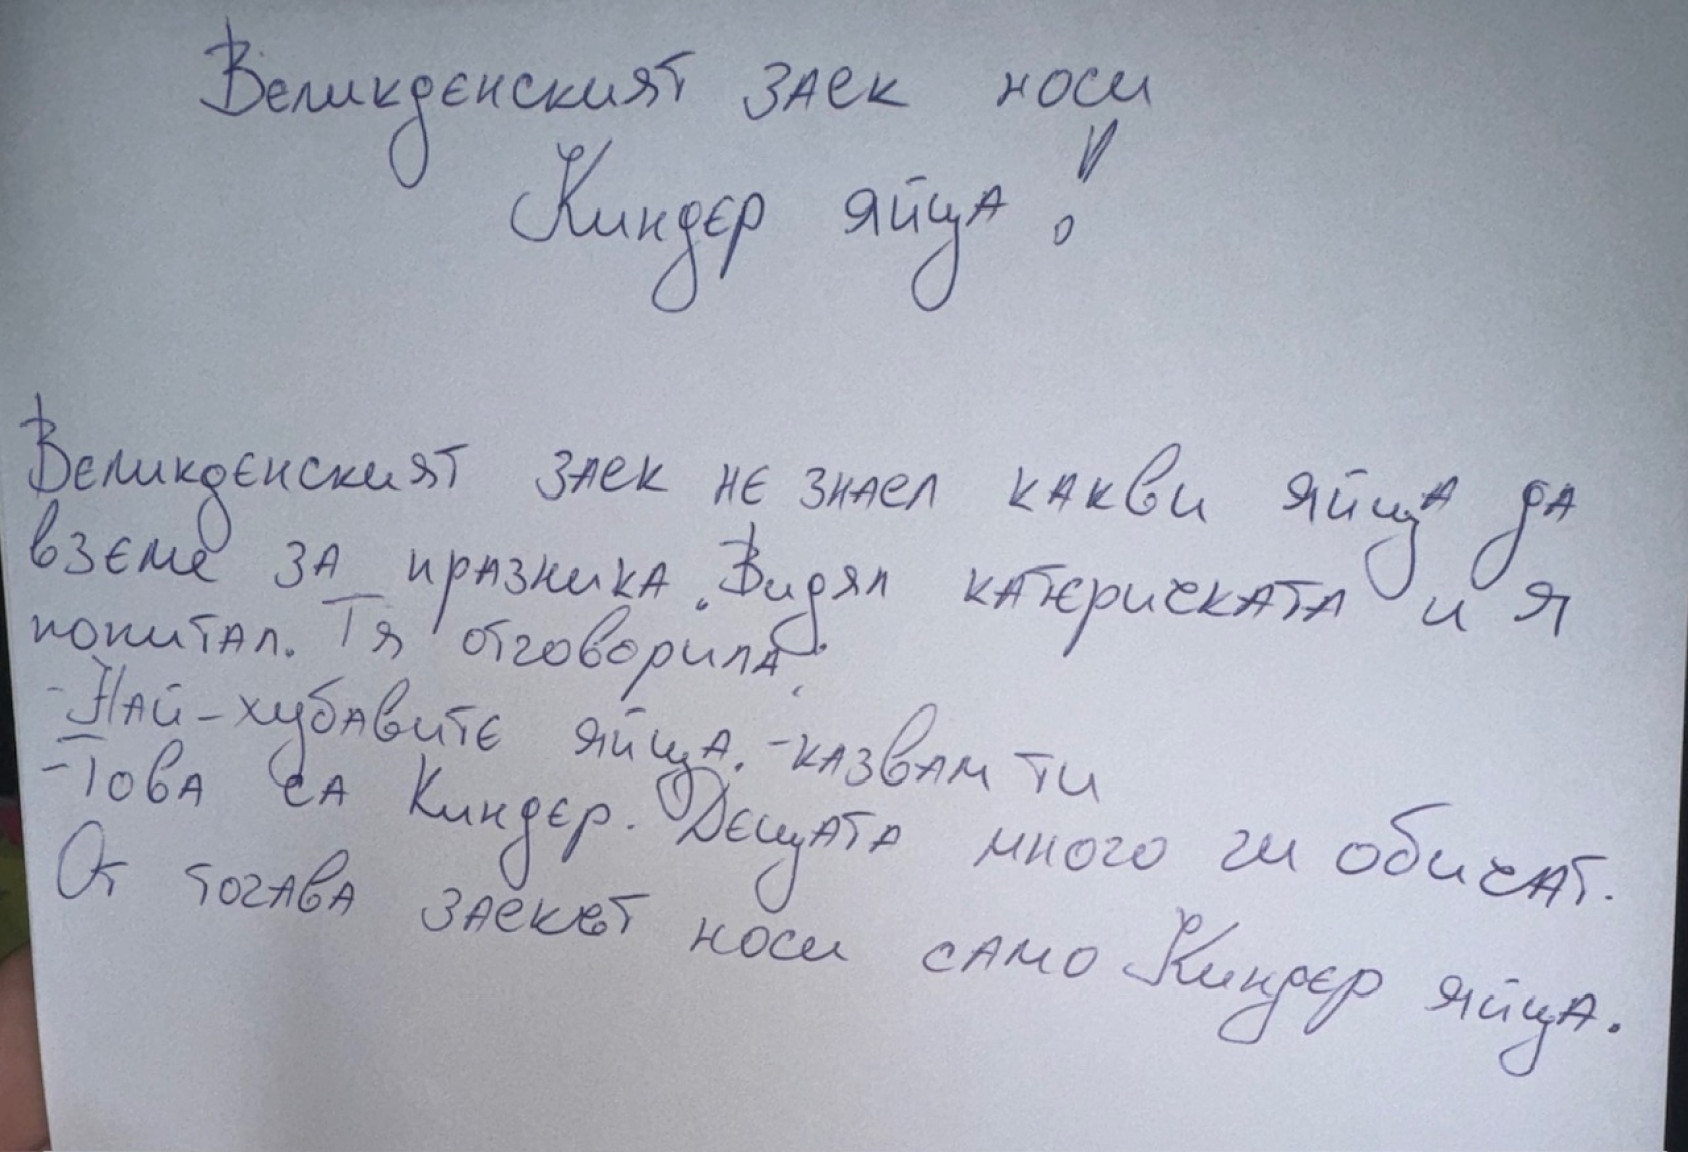 Великденският заек носи
Киндер яйца!
Великденският заек не знаел какви яйца да
вземе за празника. Видял катеричката и я
попитал. Тя отговорила:
-Най-хубавите яйца. -казвам ти
-Това са Киндер. Децата много ги обичат.
От тогава заекът носи само Киндер яйца.